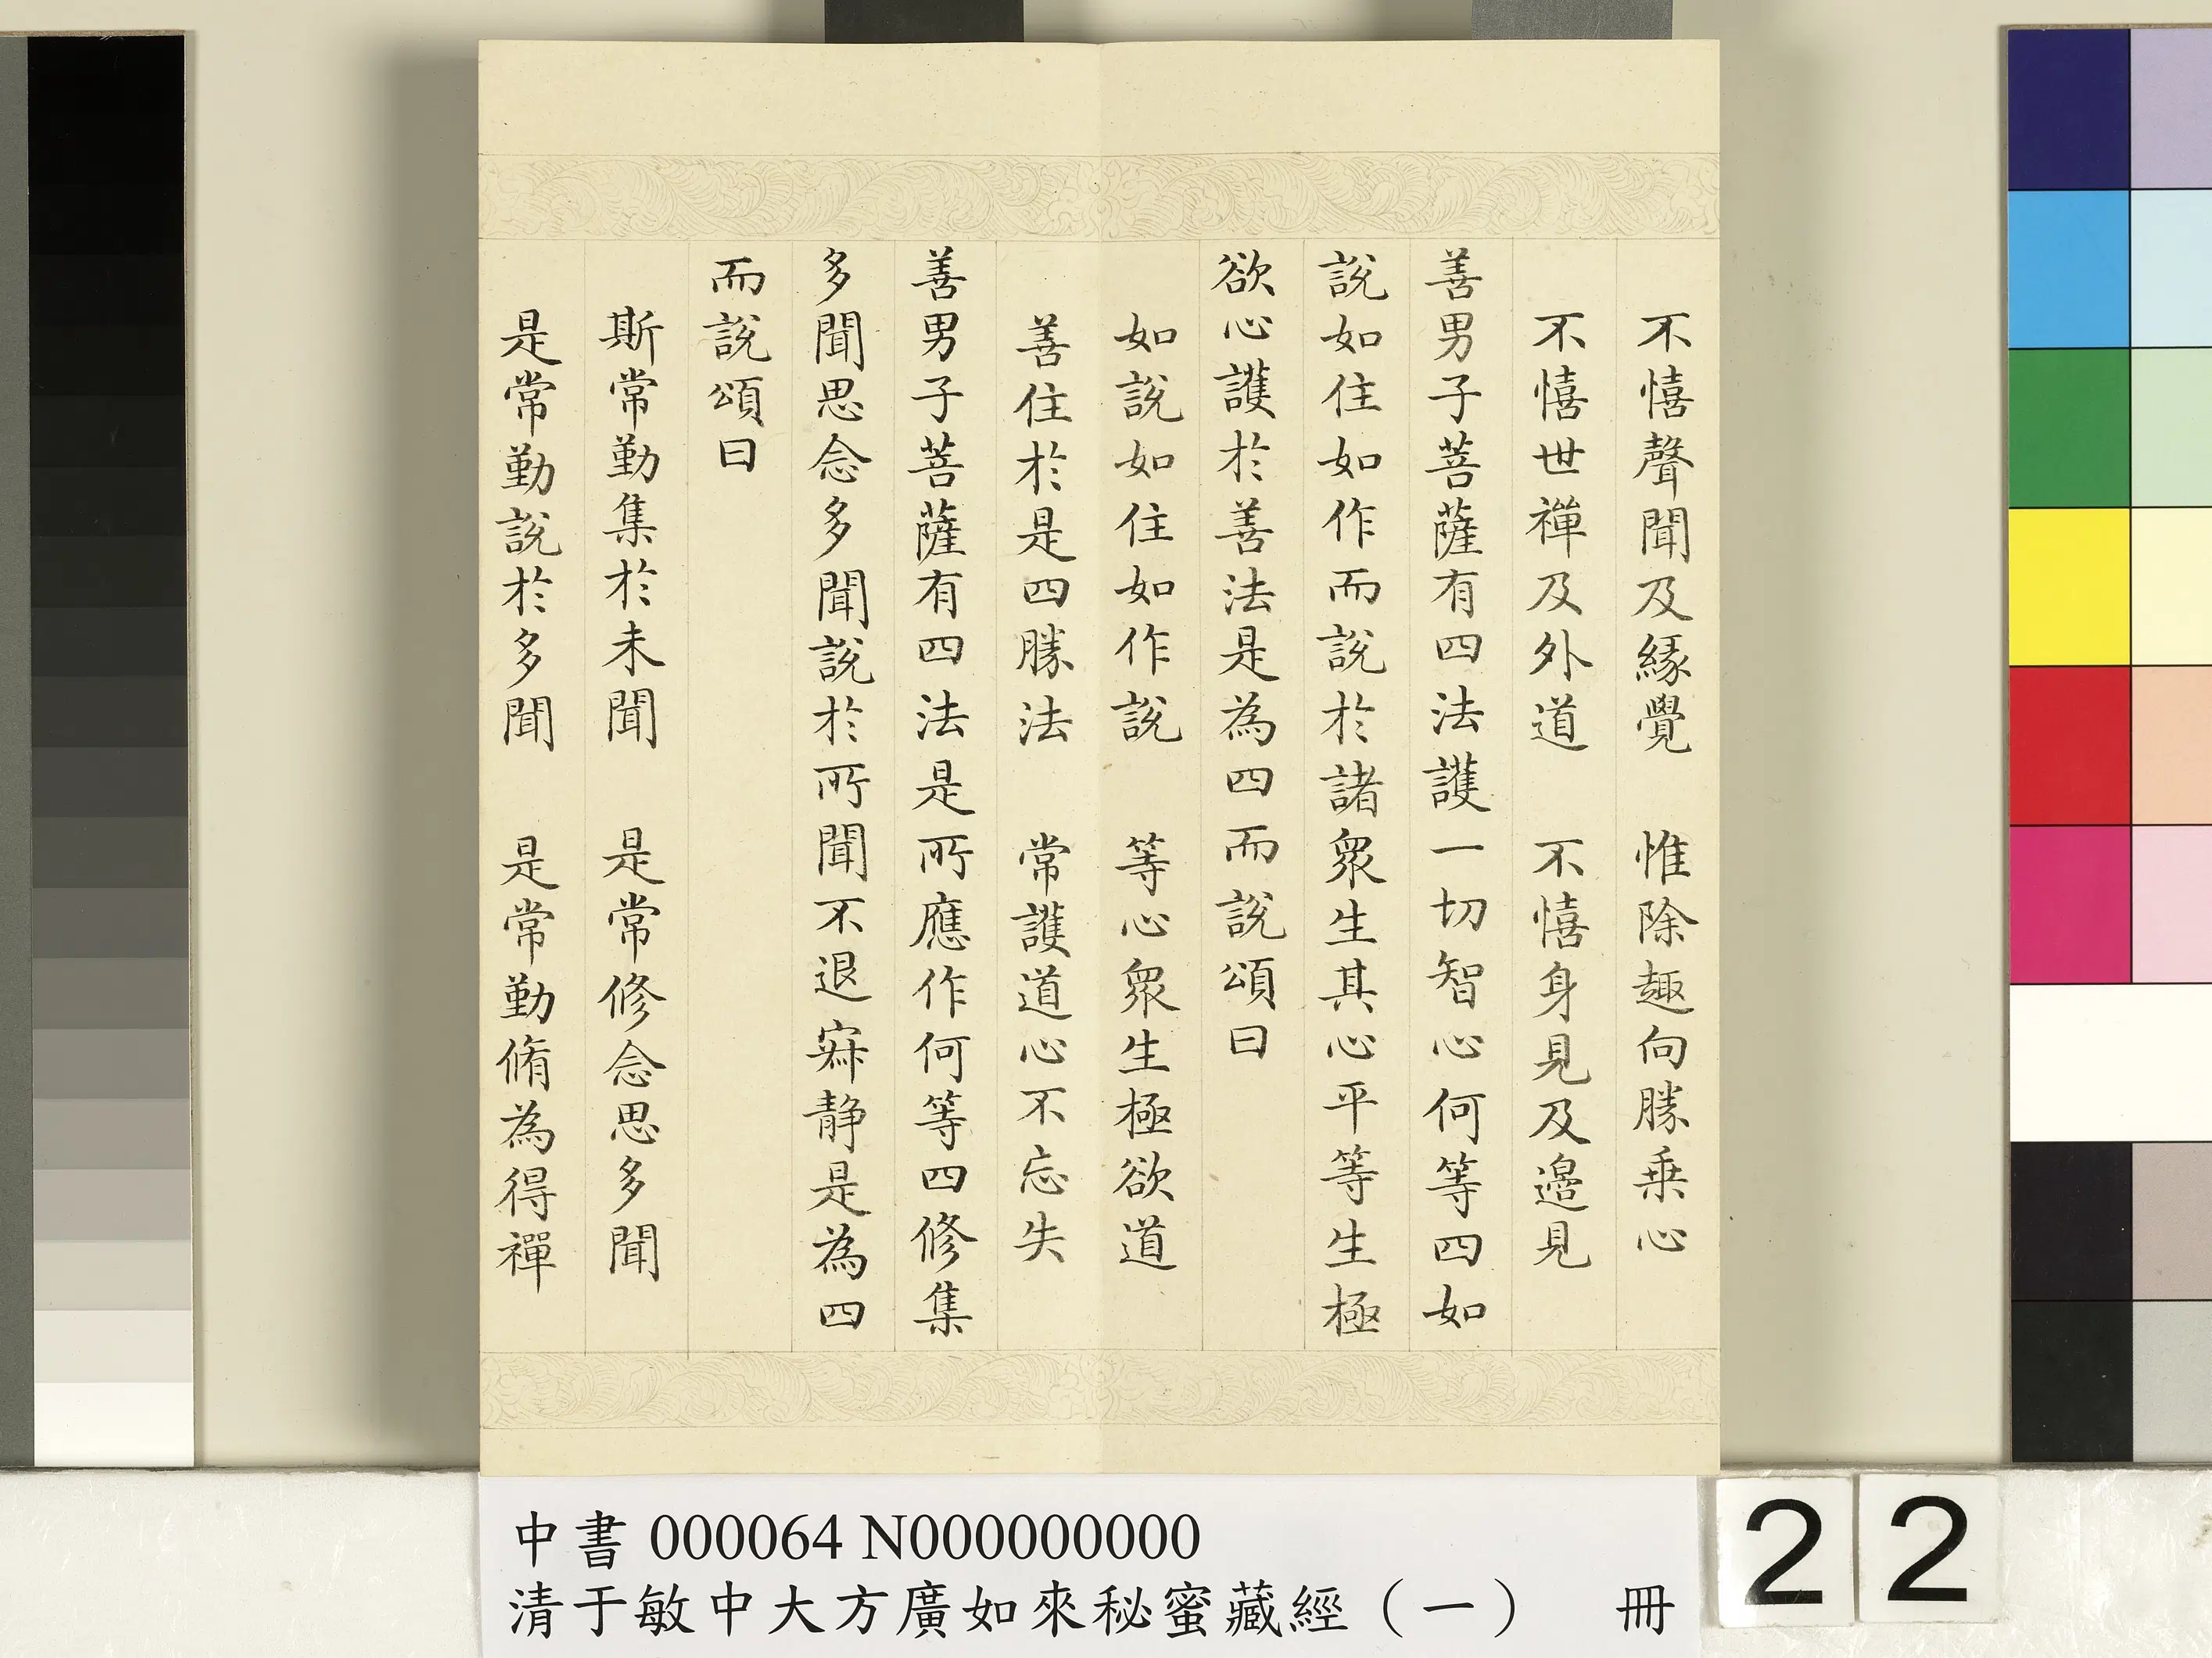 不憘聲聞及緣覺　惟除趣向勝乗心
不憘世禪及外道　不憘身見及邊見
善男子菩薩有四法護一切智心何等四如
說如住如作而說於諸衆生其心平等生極
欲心護於善法是為四而說頌曰
如說如住如作說　等心衆生極欲道
善住於是四勝法　常護道心不忘失
善男子菩薩有四法是所應作何等四修集
多聞思念多聞說於所聞不退寂静是為四
而說頌曰
斯常勤集於未聞　是常修念思多聞
是常勤說於多聞　是常勤脩為得禪
中書 000064 N000000000
清于敏中大方廣如來秘蜜藏經（一）　冊
22